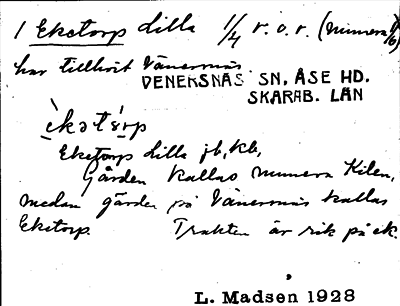 1 Eketorp Lilla 1/4 r. o. r. (numera 1/6)
har tillhört Vänersnäs
VENERSNÄS SN, ÅSE HD.
SKARAB. LÄN
èkɘtórp
Eketorp Lilla jb, kb,
Gården kallas numera Kilen,
medan gården på Vänersnäs kallas
Eketorp. Trakten är rik på ek.
L. Madsén 1928